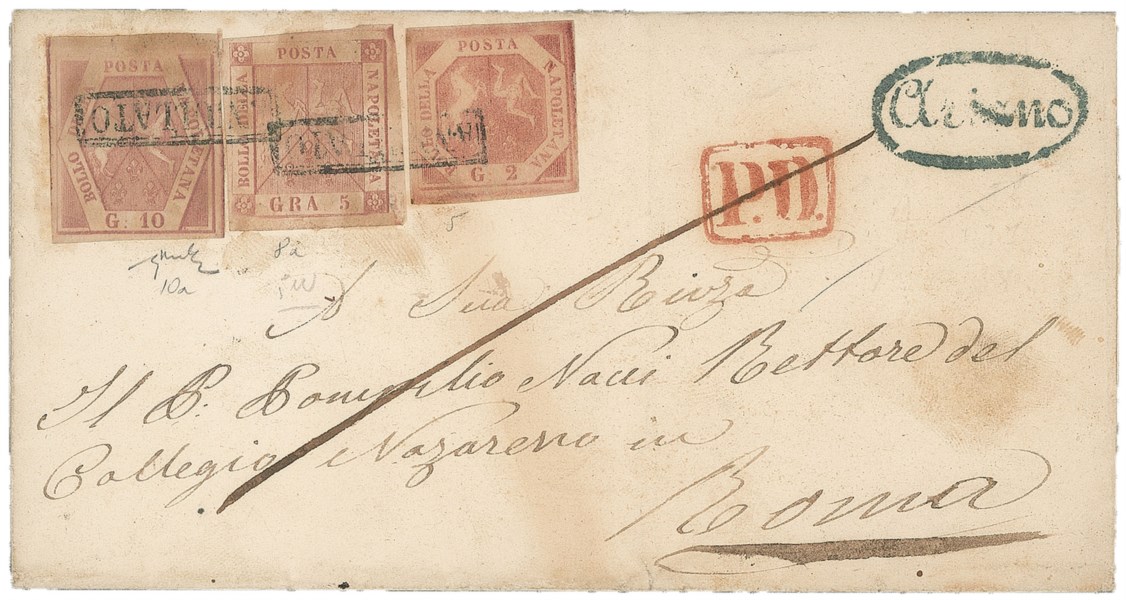 POSTA
BOLLO DELLA NAPOLETANA
G. 10
ANNULLATO
POSTA
BOLLO DELLA NAPOLETANA
GRA 5
POSTA
BOLLO DELLA NAPOLETANA
G 2
Ariano
P.D.
10a
8a
5
A Sua Rivza
Il P: Pompilio Nocci Rettore del
Collegio Nazareno in
Roma